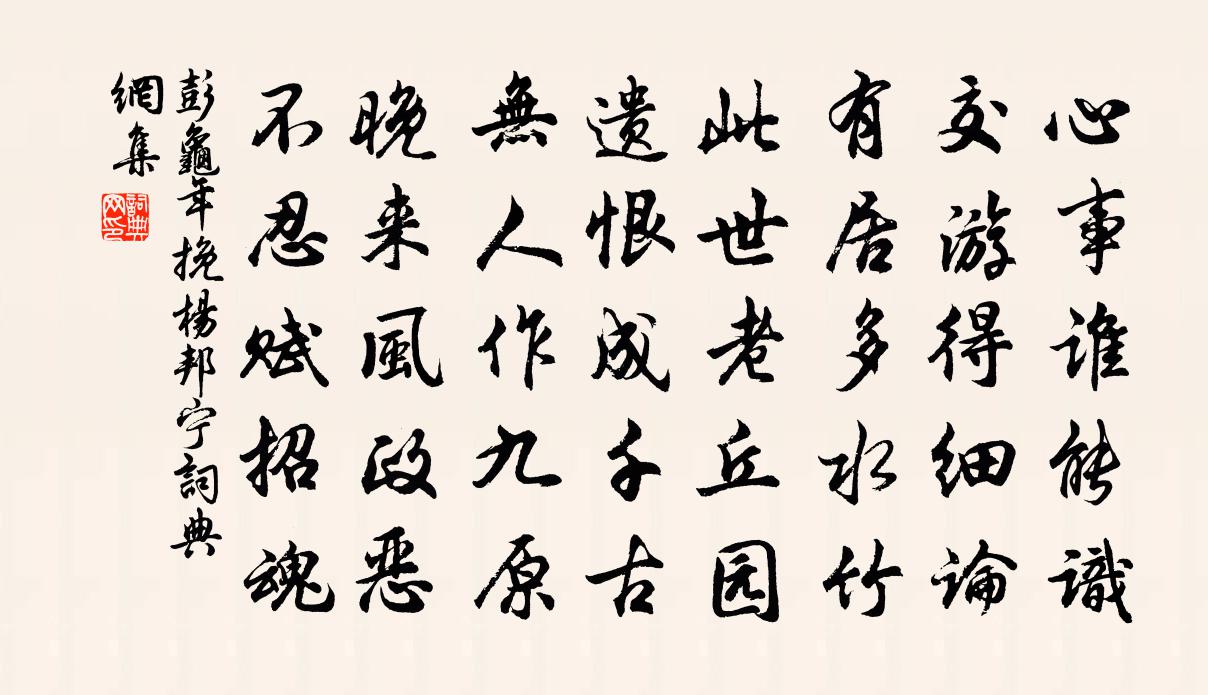 心事谁能識
交游得细論
有居多水竹
此世老丘园
遗恨成千古
無人作九原
晚来風政恶
不忍赋招魂
彭龜年挽楊邦宁詞典
網集
詞典
网印